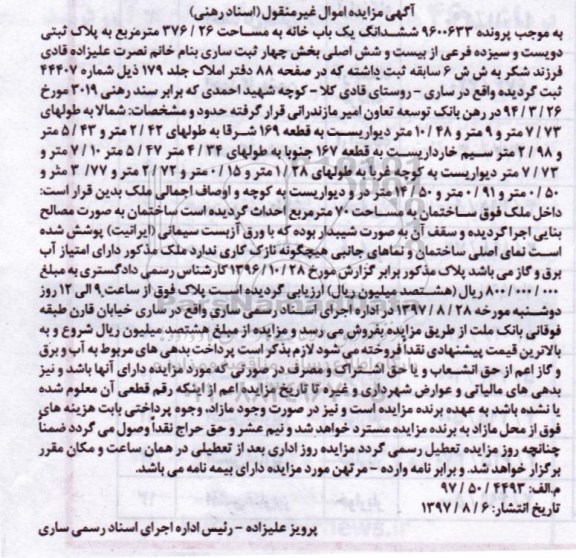 آگهی مزایده اموال غیرمنقول (اسناد رهنی)
به موجب پرونده ۹۶۰۰۶۳۳ ششدانگ یک باب خانه به مساحت ۲۶ / ۳۷۶ مترمربع به پلاک ثبتی
دویست و سیزده فرعی از بیست و شش اصلی بخش چهار ثبت ساری بنام خانم نصرت علیزاده قادی
فرزند شکر به ش ش ۶ سابقه ثبت داشته که در صفحه ۸۸ دفتر املاک جلد ۱۷۹ ذیل شماره ۴۴۴۰۷
ثبت گردید. واقع در ساری - روستای قادی کلا - کوچه شهید احمدی که برابر سند رهنی ۳۰۱۹ مورخ
۹۴ / ۳ / ۲۶ در رهن بانک توسعه تعاون امیر مازندرانی قرار گرفته حدود و مشخصات: شمالا به طولهای
۷ / ۷۳ متر و ۹ متر و ۴۸ / ۱۰ متر دیواریست به قطعه ۱۶۹ شرقا به طولهای ۴۲ / ۲ متر و ۴۳ / ۵ متر
و ۹۸ / ۲ متر سیم خارداریست به قطعه ۱۶۷ جنوبا به طولهای ۳۴ / ۴ متر ۴۷ / ۵ متر ۱۰ / ۷ متر و
۷۳ / ۷ متر دیواریست به کوچه غربا به طولهای ۲۸ / ۱ متر و ۱۵ / ۰ متر و ۷۲ / ۲ متر و ۷۷ / ۳ متر و
۵۰ / ۰ متر و ۹۱ / ۰ متر و ۵۰ / ۱۴ متر در و دیواریست به کوچه و اوصاف اجمالی ملک بدین قرار است:
داخل ملک فوق ساختمان به مساحت ۷۰ مترمربع احداث گردیده است ساختمان به صورت مصالح
بنایی اجرا گردیده و سقف آن به صورت شیبدار بوده که با ورق آزبست سیمانی (ایرانیت) پوشش شده
است نمای اصلی ساختمان و نماهای جانبی هیچگونه نازک کاری ندارد ملک مذکور دارای امتیاز آب
برق و گاز می باشد پلاک مذکور برابر گزارش مورخ ۲۸ / ۱۰ / ۱۳۹۶ کارشناس رسمی دادگستری به مبلغ
۸۰۰/۰۰۰/۰۰۰ ریال (هشتصد میلیون ریال) ارزیابی گردیده است پلاک فوق از ساعت ۹ الی ۱۲ روز
دوشنبه مورخه ۲۸ / ۸ / ۱۳۹۷ در اداره اجرای اسناد رسمی ساری واقع در ساری خیابان قارن طبقه
فوقانی بانک ملت از طریق مزایده بفروش می رسد و مزایده از مبلغ هشتصد میلیون ریال شروع و به
بالاترین قیمت پیشنهادی نقدا فروخته می شود لازم بذکر است پرداخت بدهی های مربوط به آب و برق
و گاز اعم از حق انشعاب و یا حق اشتراک و مصرف در صورتی که مورد مزایده دارای آنها باشد و نیز
بدهی های مالیاتی و عوارض شهرداری و غیره تا تاریخ مزایده اعم از اینکه رقم قطعی آن معلوم شده
یا نشده باشد به عهده برنده مزایده است و نیز در صورت وجود مازاد، وجوه پرداختی بابت هزینه های
فوق از محل مازاد به برنده مزایده مسترد خواهد شد و نیم عشر و حق حراج نقدا وصول می گردد ضمناً
چنانچه روز مزایده تعطیل رسمی گردد مزایده روز اداری بعد از تعطیلی در همان ساعت و مکان مقرر
برگزار خواهد شد. و برابر نامه وارده - مرتهن مورد مزایده دارای بیمه نامه می باشد.
م.الف: ۴۴۹۳ / ۵۰ / ۹۷
تاریخ انتشار: ۶ / ۸ / ۱۳۹۷
پرویز علیزاده - رئیس اداره اجرای اسناد رسمی ساری